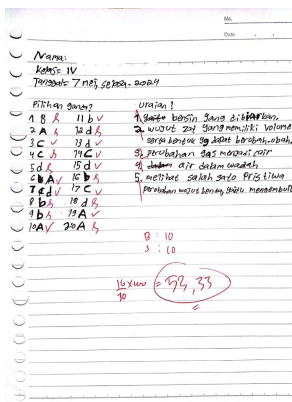 No.
Date
Nama:
Kelas: IV
Tanggal: 7 mei, selasa - 2024
Pilihan ganda?
1 B
2 A
3 C
4 C
5 d
6 A
7 d
8 b
9 b
10 A
11 b
12 d
13 d
14 C
15 d
16 b
17 C
18 d
19 A
20 A
uraian!
1. bersin yang dibiarkan.
2. wujut zat yang memiliki volume
serta bentuk yg dapat berobah-obah.
3. perubahan gas menjadi cair
4. air dalam wadah
5. melihat salah satu Pristiwa
perobahan wujut benda, yaitu mengembun
B : 10
S : 10
= 53,33